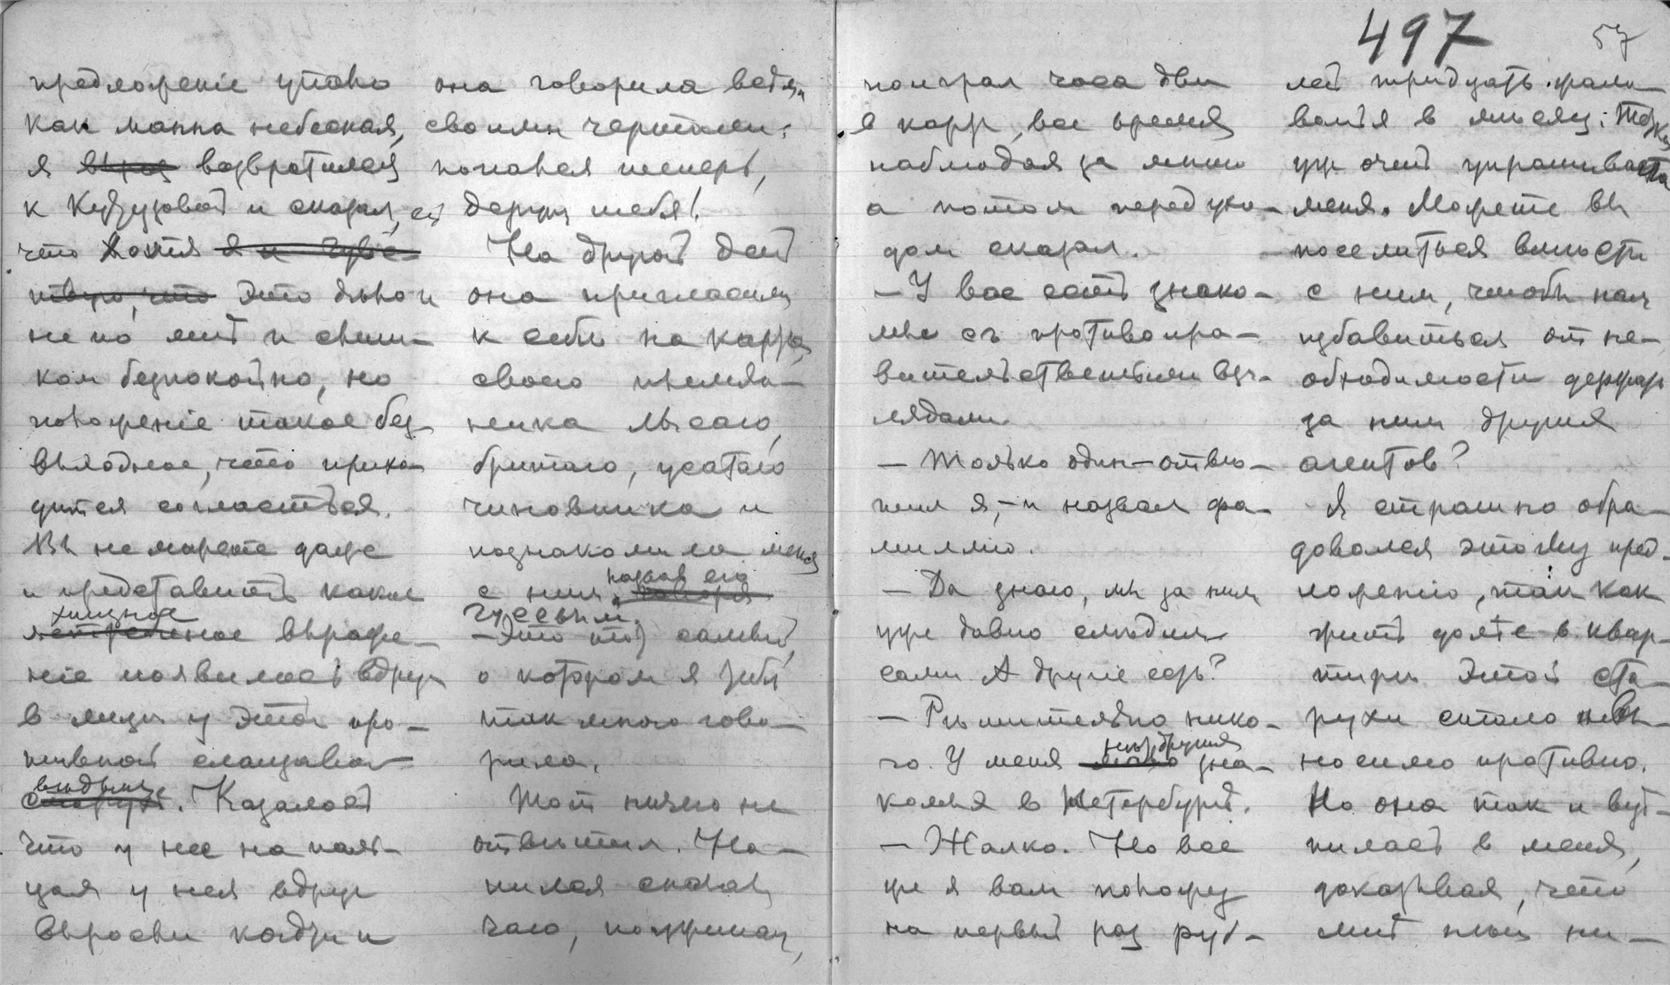 497
57
предложеніе упало
как манна небесная,
я возвратился
к Кудузовой и сказал, ей
что хотя я и чувс-
твую, что это дѣло и
не по мнѣ и слиш-
ком безпокойно, но
положеніе такое без
выходное, что прихо-
дится согласиться.
Вы не можете даже
и представить какое
хищное
выраже-
ніе появилось вдруг
в лицѣ у этой про-
тивной слащавой
вѣдьмы
старухи. Казалось
что у нее на паль-
цах у нея вдруг
выросли когти и
она говорила всѣм
своими чертами:
попался теперь,
держу тебя!
На другой день
она пригласила
к себѣ на карты
своего племян-
ника лысаго,
бритаго, усатаго
чиновника и
познакомила меня
с ним, назвав его
Гусевым.
— Это тот самый,
о котором я тебѣ
так много гово-
рила.
Тот ничего не
отвѣтил. На-
пился
чаю, поужинал,
поиграл часа два
в карты, все время
наблюдая за мною
а потом перед ухо-
дом сказал.
— У вас есть знако-
мые съ противопра-
вительственными взг-
лядами
— Только один — отвѣ-
тил я, — и назвал фа-
милію.
— Да знаю, мы за ним
уже давно слѣдим
сами А другіе есть?
— Рѣшительно нико-
го. У меня нѣт других зна-
комых в Петербургѣ.
— Жалко. Но все
же я вам положу
на первый раз руб-
лей тридцать жало-
ванья в мѣсяц: Тетка
уж очень упрашивала
меня. Можете вы
поселиться вмѣстѣ
с ним, чтобы нам
избавиться от не-
обходимости держать
за ним других
агентов?
Я страшно обра-
довался этому пред-
ложенію, так как
жить далѣе в квар-
тирѣ этой ста-
рухи стало невы-
носимо противно.
Но она так и вцѣ-
пилась в меня,
доказывая, что
мнѣ нельзя ни-